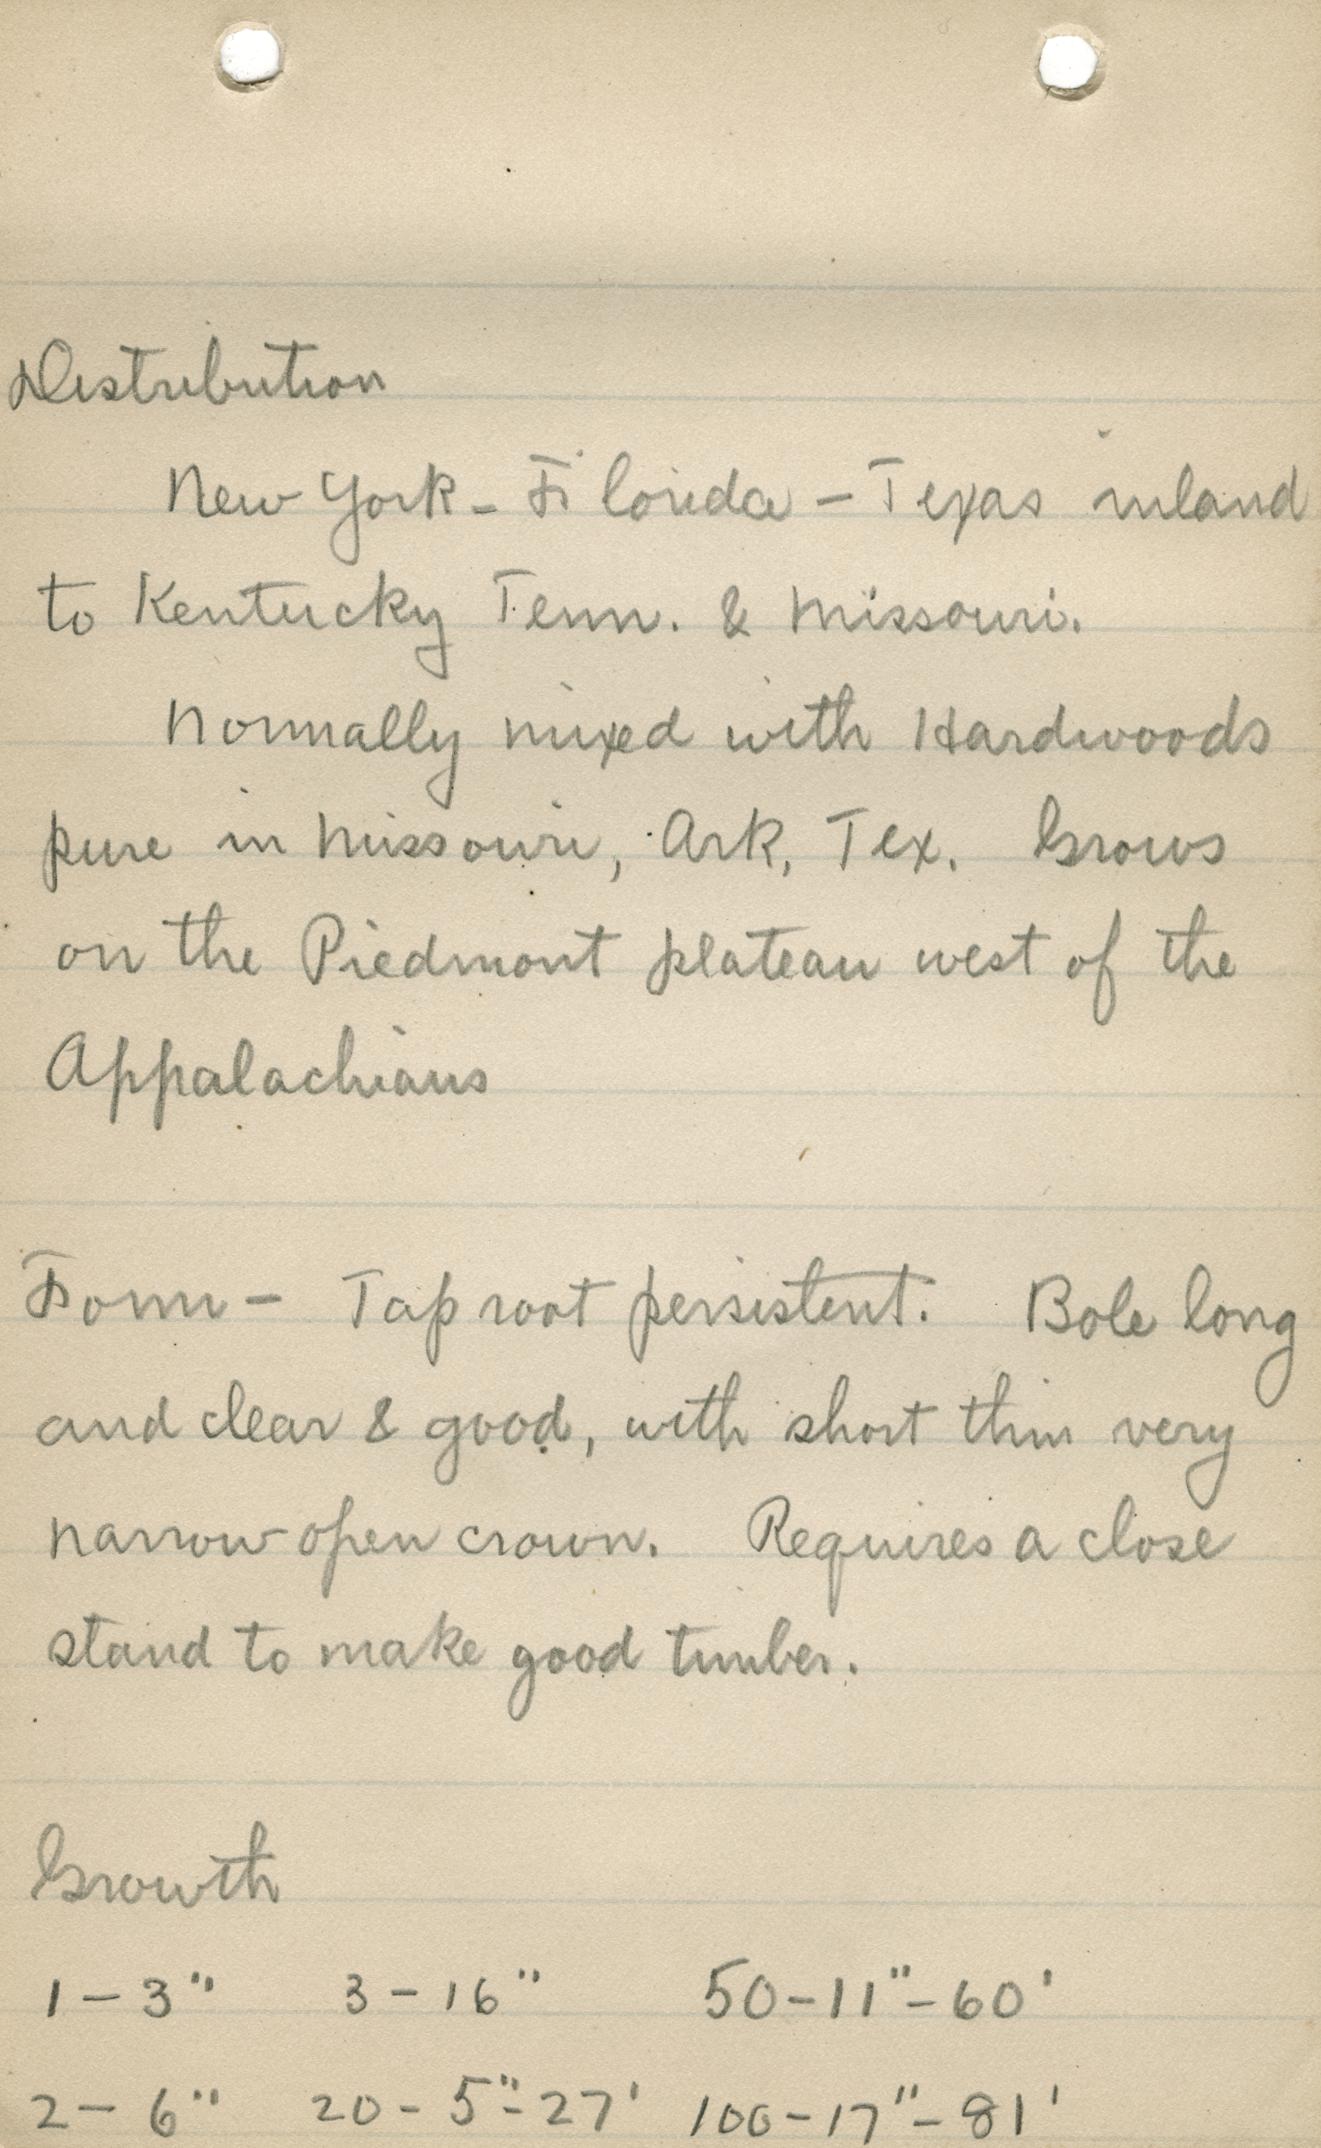 Distribution
New York - Florida - Texas inland
to Kentucky Tenn. & Missouri.
Normally mixed with Hardwoods
pure in Missouri, Ark, Tex. Grows
on the Piedmont plateau west of the
Appalachians
Form - Tap root persistent. Bole long
and clear & good, with short thin very
narrow open crown. Requires a close
stand to make good timber.
Growth
1 - 3" 3 - 16" 50 - 11" - 60'
2 - 6" 20 - 5" - 27' 100 - 17" - 81'